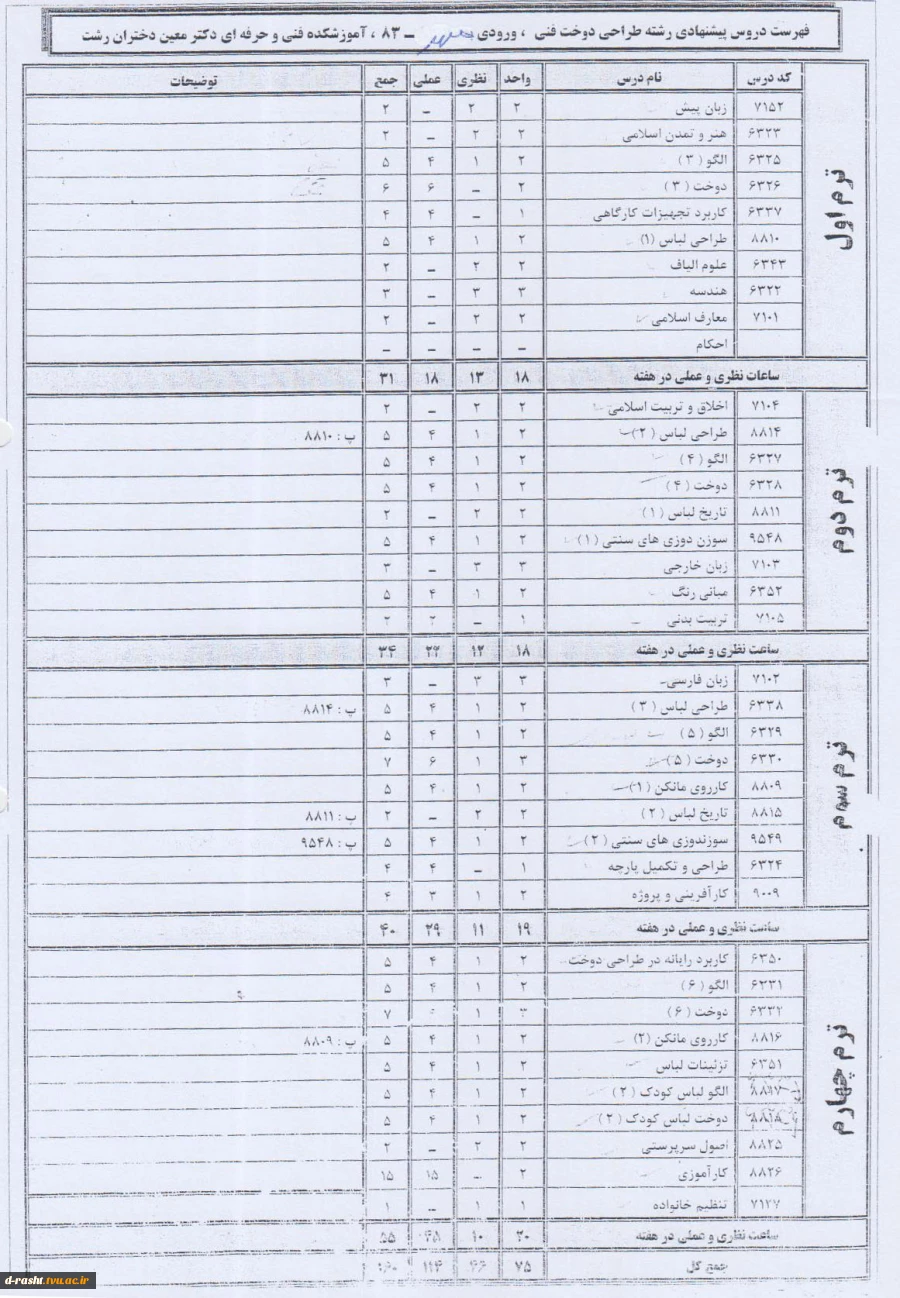 فهرست دروس پیشنهادی رشته طراحی دوخت فنی ، ورودی – ۸۳ ، آموزشکده فنی و حرفه ای دکتر معین دختران رشت
کد درس نام درس واحد نظری عملی جمع توضیحات
ترم اول
۷۱۵۲ زبان پیش ۲ ۲ – ۲
۶۳۲۳ هنر و تمدن اسلامی ۲ ۲ – ۲
۶۳۲۵ الگو ( ۳ ) ۲ ۱ ۴ ۵
۶۳۲۶ دوخت ( ۳ ) ۲ – ۶ ۶
۶۳۳۷ کاربرد تجهیزات کارگاهی ۱ – ۴ ۴
۸۸۱۰ طراحی لباس (۱) ۲ ۱ ۴ ۵
۶۳۴۳ علوم الیاف ۲ ۲ – ۲
۶۳۲۲ هندسه ۳ ۳ – ۳
۷۱۰۱ معارف اسلامی ۲ ۲ – ۲
احکام – – – –
ساعات نظری و عملی در هفته ۱۸ ۱۳ ۱۸ ۳۱
ترم دوم
۷۱۰۴ اخلاق و تربیت اسلامی ۲ ۲ – ۲
۸۸۱۴ طراحی لباس ( ۲ ) ۲ ۱ ۴ ۵ پ : ۸۸۱۰
۶۳۲۷ الگو ( ۴ ) ۲ ۱ ۴ ۵
۶۳۲۸ دوخت ( ۴ ) ۲ ۱ ۴ ۵
۸۸۱۱ تاریخ لباس ( ۱ ) ۲ ۲ – ۲
۹۵۴۸ سوزن دوزی های سنتی ( ۱ ) ۲ ۱ ۴ ۵
۷۱۰۳ زبان خارجی ۳ ۳ – ۳
۶۳۵۲ مبانی رنگ ۲ ۱ ۴ ۵
۷۱۰۵ تربیت بدنی ۱ – ۲ ۲
ساعت نظری و عملی در هفته ۱۸ ۱۲ ۲۲ ۳۴
ترم سوم
۷۱۰۲ زبان فارسی ۳ ۳ – ۳
۶۳۳۸ طراحی لباس ( ۳ ) ۲ ۱ ۴ ۵ پ : ۸۸۱۴
۶۳۲۹ الگو ( ۵ ) ۲ ۱ ۴ ۵
۶۳۳۰ دوخت ( ۵ ) ۳ ۱ ۶ ۷
۸۸۰۹ کارروی مانکن ( ۱ ) ۲ ۱ ۴ ۵
۸۸۱۵ تاریخ لباس ( ۲ ) ۲ ۲ – ۲ پ : ۸۸۱۱
۹۵۴۹ سوزندوزی های سنتی ( ۲ ) ۲ ۱ ۴ ۵ پ : ۹۵۴۸
۶۳۲۴ طراحی و تکمیل پارچه ۱ – ۴ ۴
۹۰۰۹ کارآفرینی و پروژه ۲ ۱ ۳ ۴
ساعت نظری و عملی در هفته ۱۹ ۱۱ ۲۹ ۴۰
ترم چهارم
۶۳۵۰ کاربرد رایانه در طراحی دوخت ۲ ۱ ۴ ۵
۶۳۳۱ الگو ( ۶ ) ۲ ۱ ۴ ۵
۶۳۳۲ دوخت ( ۶ ) ۳ ۱ ۷
۸۸۱۶ کارروی مانکن (۲) ۲ ۱ ۴ ۵ پ : ۸۸۰۹
۶۳۵۱ تزئینات لباس ۲ ۱ ۴ ۵
۸۸۱۷ الگو لباس کودک ( ۲ ) ۲ ۱ ۴ ۵
۸۸۱۸ دوخت لباس کودک ( ۲ ) ۲ ۱ ۴ ۵
۸۸۲۵ اصول سرپرستی ۲ ۲ – ۲
۸۸۲۶ کارآموزی ۲ – ۱۵ ۱۵
۷۱۲۷ تنظیم خانواده ۱ ۱ – ۱
ساعت نظری و عملی در هفته ۲۰ ۱۰ ۴۵ ۵۵
جمع کل ۷۵ ۴۶ ۱۱۴ ۱۶۰
d-rasht.tvu.ac.ir